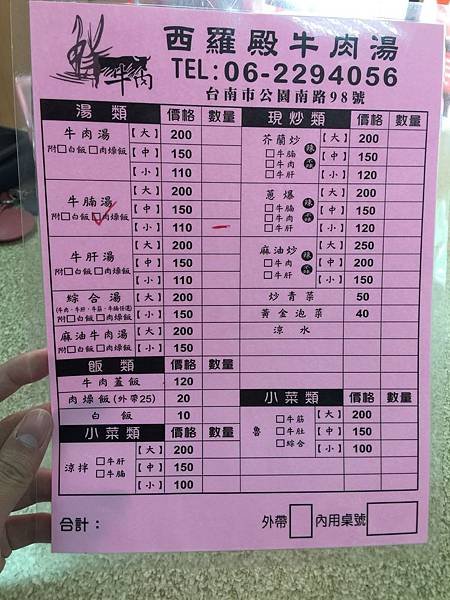 鮮牛肉
西羅殿牛肉湯
TEL:06-2294056
台南市公園南路98號
湯類 價格 數量
牛肉湯 【大】 200
附□白飯□肉燥飯 【中】 150
【小】 110
牛腩湯 【大】 200
附□白飯□肉燥飯 【中】 150
【小】 110 一
牛肝湯 【大】 200
附□白飯□肉燥飯 【中】 150
【小】 110
綜合湯 【大】 200
(牛肉、牛肝、牛筋、牛腩任選)
附□白飯□肉燥飯 【小】 150
麻油牛肉湯 【大】 200
附□白飯□肉燥飯 【小】 150
飯類 價格 數量
牛肉蓋飯 120
肉燥飯(外帶25) 20
白飯 10
小菜類 價格 數量
涼拌 □牛肝 □牛腩 【大】 200
【中】 150
【小】 100
現炒類 價格 數量
芥蘭炒 【大】 200
□牛腩 □牛肉 □牛肝 【中】 150
【小】 120
蔥爆 【大】 200
□牛腩 □牛肉 □牛肝 【中】 150
【小】 120
麻油炒 【大】 250
□牛肉 □牛肝 【中】 200
【小】 150
炒青菜 50
黃金泡菜 40
涼水
小菜類 價格 數量
魯 □牛筋 □牛肚 □綜合 【大】 200
【中】 150
【小】 100
合計： 外帶 內用桌號